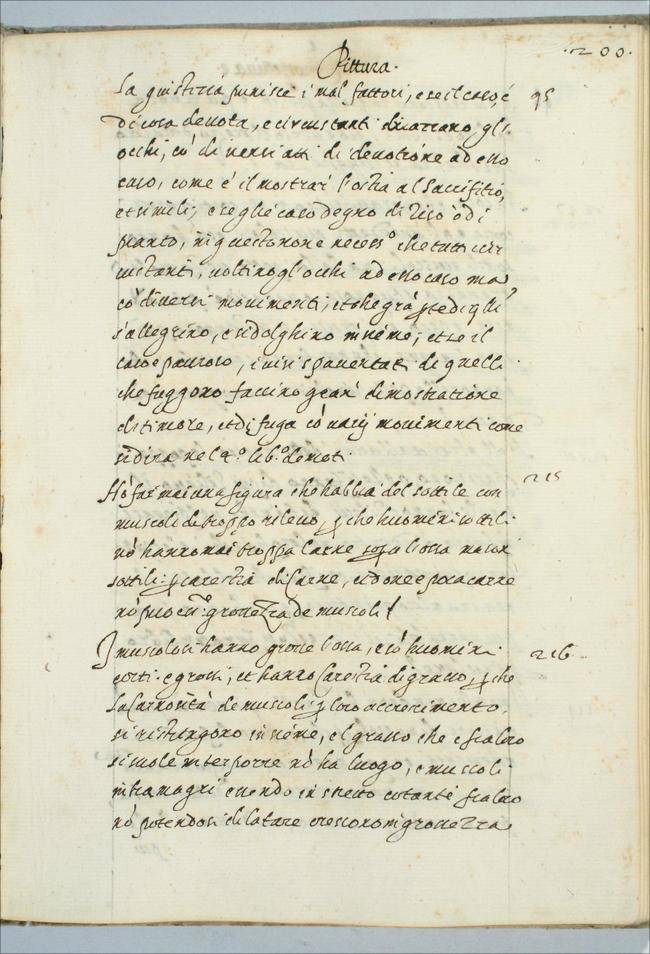 .200.
Pittura.
la giustitia punisce i mal fattori, e se il caso, é 95
di cosa devota, e circustanti dirizzano gli
occhi, cō diversi atti di devotione ad esso
caso, come é il mostrar l'ostia al Sacrifitio,
et simili; e se gl'é caso degno di riso ò di
pianto, in questo non e necess.o che tutti circ
unstanti, voltino gl'occhi ad esso caso ma
cō diversi movimenti; et che grā pte di qlli
s'allegrino, e si dolghino insieme; et se il
caso e pauroso, i visi spaventati di quelli
che fuggono faccino gran dimostratione
di timore, et di fuga cō varij movimenti come
si dirà nel 4.o lib.o de moti.
Nō far mai una figura che habbia del sottile con 215
muscoli di troppo rilevo, p che huomini sottili
nō hanno mai troppa carne sopra l'ossa ma son
sottili p carestia di Carne, et dove e poca carne
nō può ess.r grossezza de muscoli
I muscolosi hanno grosse l'ossa, e sō huomini 216
corti e grossi, et hanno Carestia di grasso, p che
la Carnosità de muscoli p loro accrescimento
si ristringono insieme, el grasso che e fra loro
si suole interporre nō ha luogo, e muscoli
in tra magri essendo in stretto costante fra loro
nō potendosi dilatare crescono in grossezza